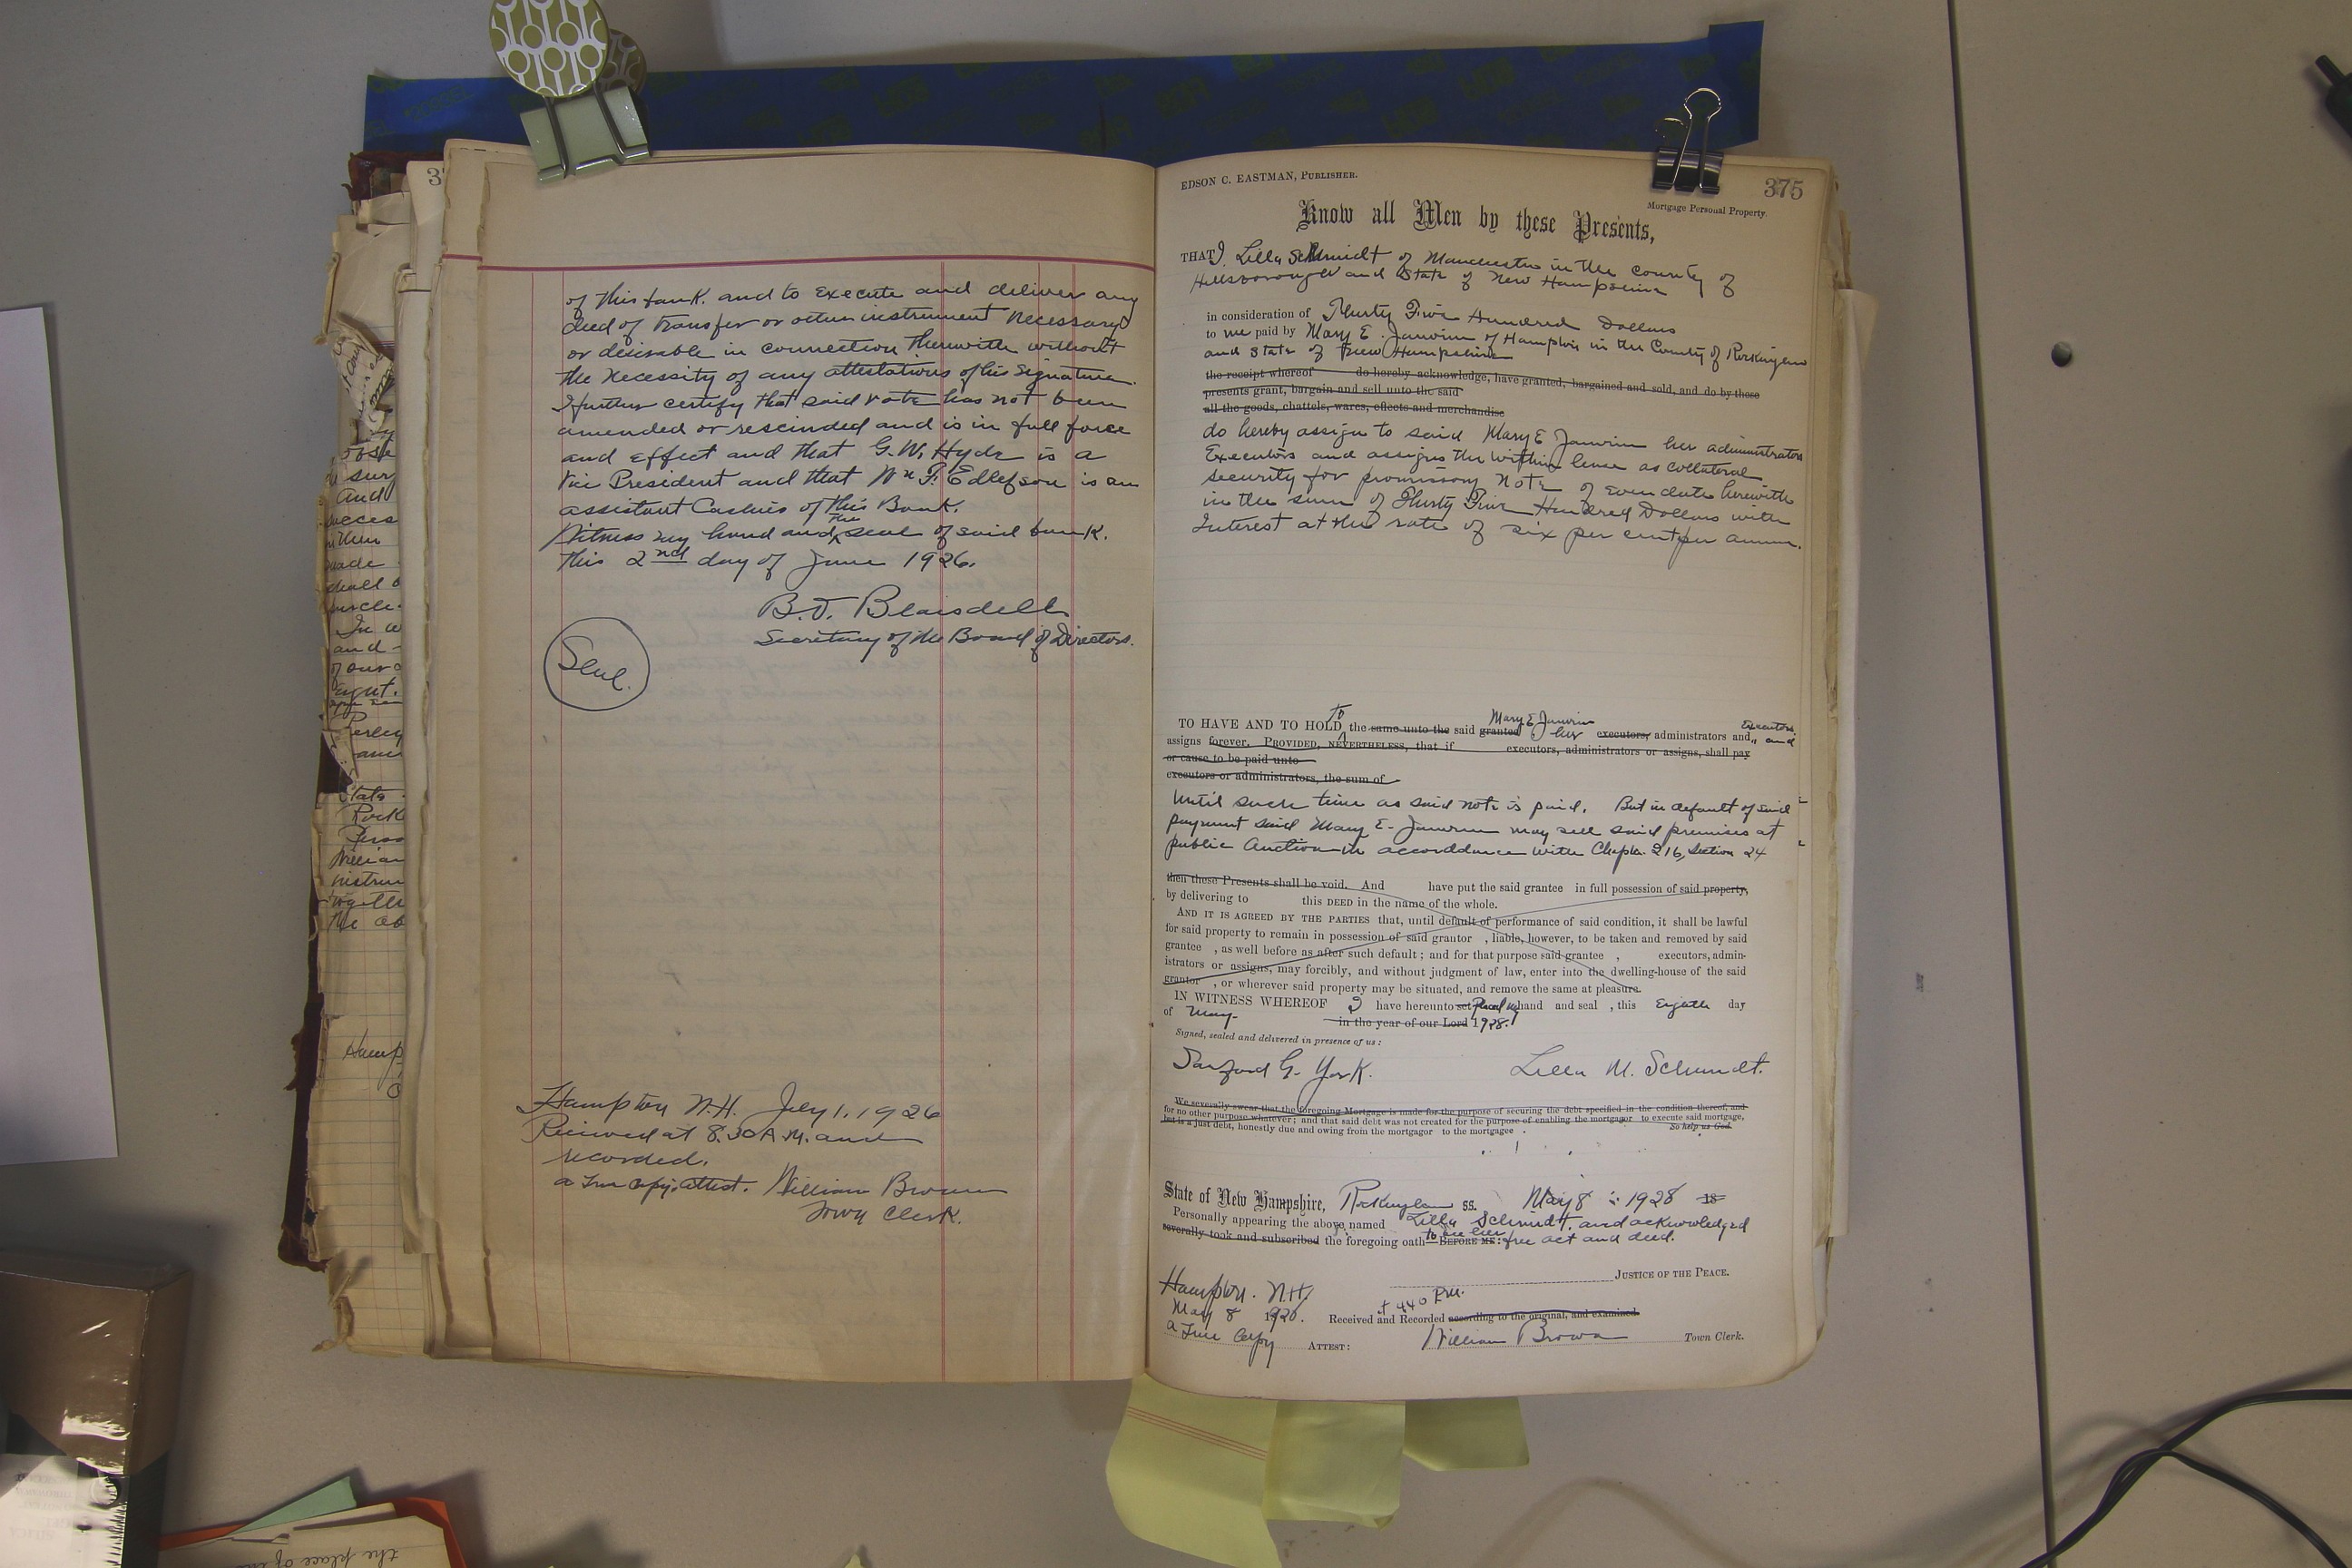 of this bank. and to execute and deliver any
deed of transfer or other instrument necessary
or desirable in connection therewith without
the necessity of any attestations of his signature.
I further certify that said vote has not been
amended or rescinded and is in full force
and effect and that G. W. Hyde is a
Vice President and that Wm F. Edlefson is an
assistant Cashier of this Bank.
Witness my hand and the seal of said bank.
this 2nd day of June 1926.
B. F. Blaisdell
Secretary of the Board of Directors.
Seal.
Hampton N.H. July 1, 1926
Recieved at 8.30 A.M. and
recorded.
a True Copy; attest. William Brown
Town Clerk.
EDSON C. EASTMAN, PUBLISHER.
375
Mortgage Personal Property.
Know all Men by these Presents,
THAT I, Lilla Schmidt of Manchester in the county of
Hillsborough and State of New Hampshire
in consideration of Thirty Five Hundred Dollars
to me paid by Mary E. Janvrin of Hampton in the County of Rockingham
and State of New Hampshire
the receipt whereof do hereby acknowledge, have granted, bargained and sold, and do by these
presents grant, bargain and sell unto the said
all the goods, chattels, wares, effects and merchandise
do hereby assign to said Mary E Janvrin her administrators
Executors and assigns the within lease as collateral
security for promissory note of even date herewith
in the sum of Thirty Five Hundred Dollars with
Interest at the rate of six per cent per annum.
TO HAVE AND TO HOLD to the same unto the said granted Mary E Janvrin her executors, administrators and Executors and
assigns forever. PROVIDED, NEVERTHELESS, that if executors, administrators or assigns, shall pay
or cause to be paid unto
executors or administrators, the sum of
Until such time as said note is paid. But in default of said
payment said Mary E. Janvrin may sell said premises at
public Auction in accorddance with Chapter 216, Section 24
then these Presents shall be void. And have put the said grantee in full possession of said property,
by delivering to this DEED in the name of the whole.
AND IT IS AGREED BY THE PARTIES that, until default of performance of said condition, it shall be lawful
for said property to remain in possession of said grantor , liable, however, to be taken and removed by said
grantee , as well before as after such default; and for that purpose said grantee , executors, admin-
istrators or assigns, may forcibly, and without judgment of law, enter into the dwelling-house of the said
grantor , or wherever said property may be situated, and remove the same at pleasure.
IN WITNESS WHEREOF I have hereunto set placed my hand and seal , this Eighth day
of May in the year of our Lord 1928.
Signed, sealed and delivered in presence of us:
Sanford G. York. Lilla M. Schmidt.
We severally swear that the foregoing Mortgage is made for the purpose of securing the debt specified in the condition thereof, and
for no other purpose whatever; and that said debt was not created for the purpose of enabling the mortgagor to execute said mortgage,
but is a just debt, honestly due and owing from the mortgagor to the mortgagee . So help us God.
State of New Hampshire, Rockingham SS. May 8 1928 18
Personally appearing the above named Lilla Schmidt. and acknowledged
severally took and subscribed the foregoing oath to be her BEFORE ME: free act and deed.
JUSTICE OF THE PEACE.
Hampton. N.H.
May 8 1928. at 4 40 P.M. Received and Recorded according to the original, and examined
a True Copy ATTEST: William Brown Town Clerk.